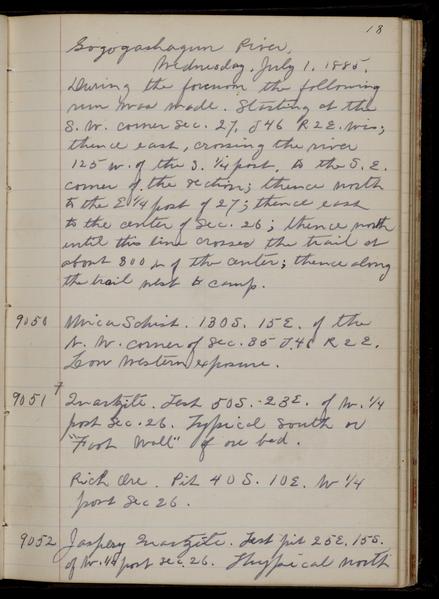 18
Gogogashagun River,
Wednesday, July 1, 1885.
During the forenoon the following
run was made. Starting at the
S. W. corner Sec. 27, T46 R2E. Wis;
thence east, crossing the river
125 W. of the S. 1/4 post, to the S. E.
corner of the section; thence north
to the E 1/4 post of 27; thence east
to the center of Sec. 26; thence north
until this line crossed the trail at
about 800 of the center; thence along
the trail west to camp.
9050 Mica Schist. 130S. 15E. of the
N. W. corner of Sec. 35 T.46 R2E.
Low Western exposure.
9051 Quartzite. Test 50S. 23E. of W. 1/4
post Sec. 26. Typical South or
"Foot Wall" of ore bed.
Rich Ore. Pit 40S. 10E. W 1/4
post Sec 26.
9052 Jaspery Quartzite. Test pit 25E. 15S.
of W. 1/4 post Sec. 26. Thypical north